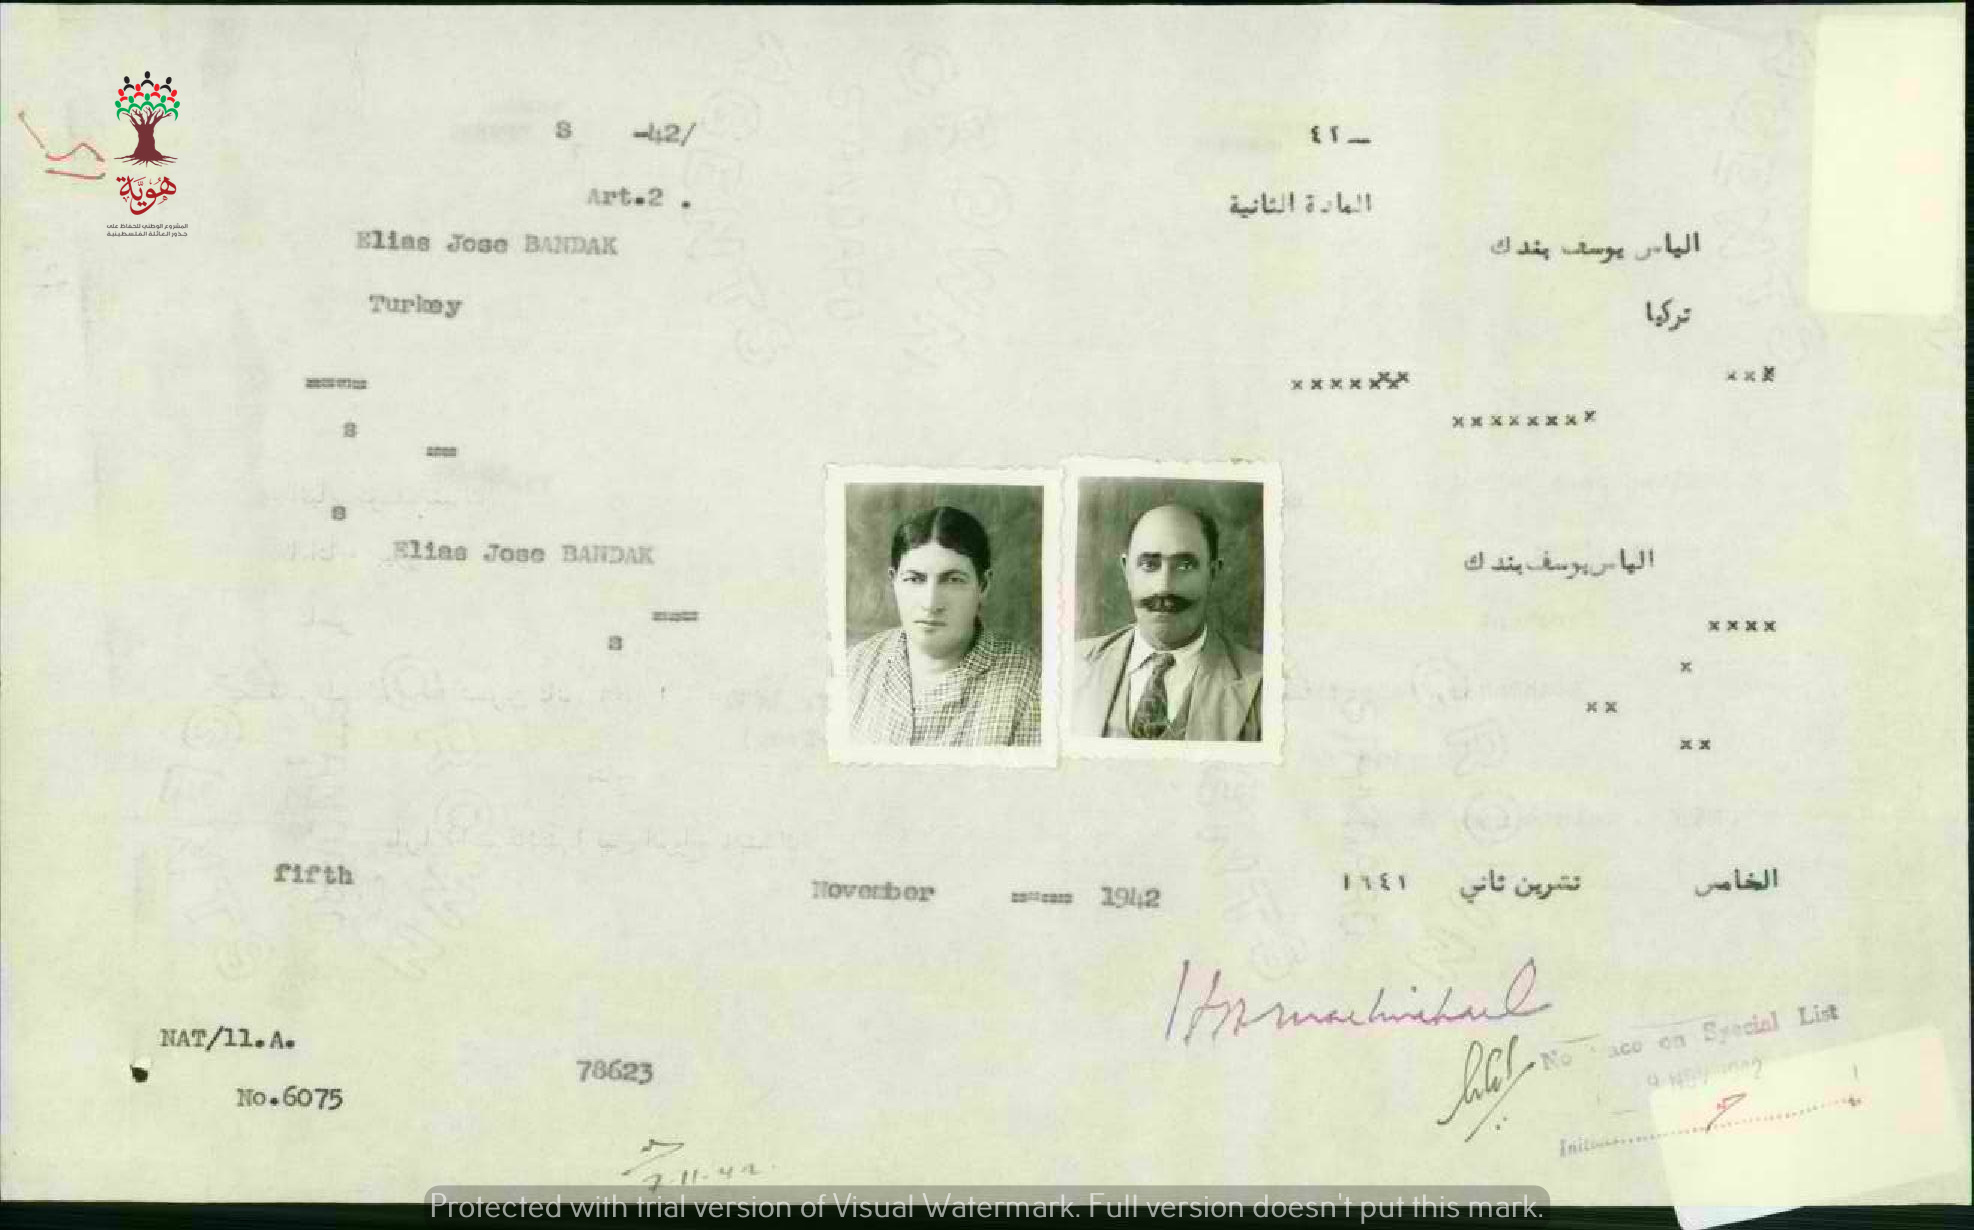 هوية
المشروع الوطني للحفاظ على
جذور العائلة الفلسطينية
S -42/
٤٢ —
Art.2 .
المادة الثانية
Elias Jose BANDAK
الياس يوسف بندك
Turkey
تركيا
=====
xxxxxxxx
xxx
S
xxxxxxxx
===
S
Elias Jose BANDAK
الياس يوسف بندك
====
xxxx
S
x
xx
xx
fifth
November ===== 1942
الخامس تشرين ثاني ١٩٤٢
NAT/11.A.
78623
No.6075
No on Special List
Init
7-11-42.
Protected with trial version of Visual Watermark. Full version doesn't put this mark.